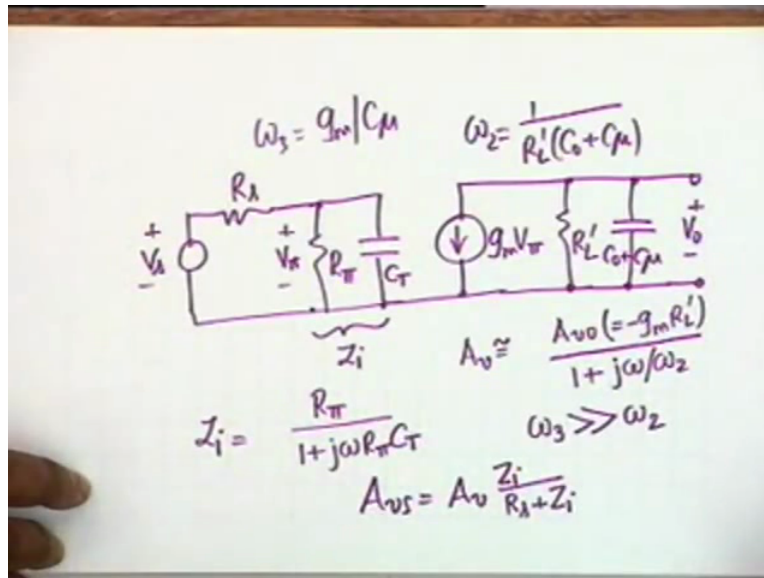 ω₃ = gₘ|Cμ ω₂ = 1/(R'_L(C₀+Cμ))
R_s
+ V_s -
+ V_π -
R_π
C_T
gₘV_π
R'_L
C₀+Cμ
+ V₀ -
Z_i
A_v ≅ A_v₀(=-gₘR'_L)/(1+jω/ω₂)
Z_i = R_π/(1+jωR_πC_T)
ω₃ >> ω₂
A_vs = A_v Z_i/(R_s+Z_i)